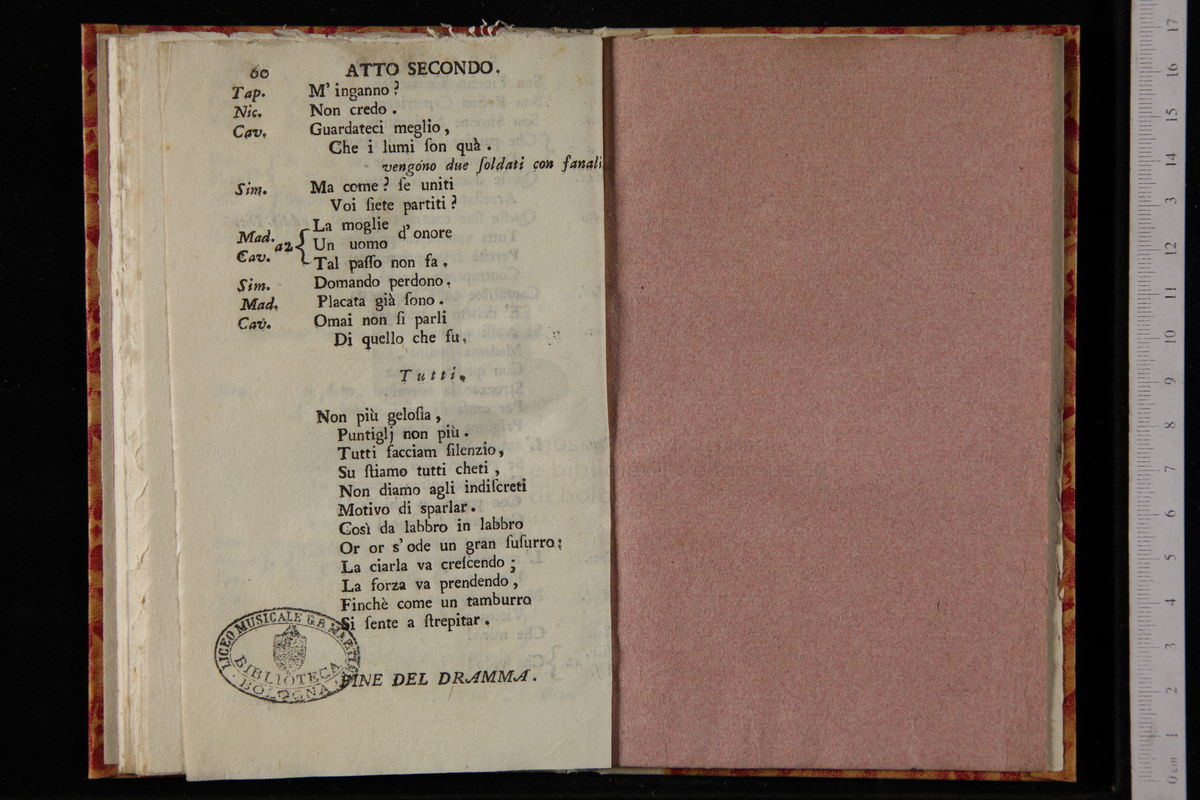 60 ATTO SECONDO.
Tap. M' inganno?
Nic. Non credo.
Cav. Guardateci meglio,
Che i lumi ſon quà.
vengono due ſoldati con fanali
Sim. Ma come? ſe uniti
Voi ſiete partiti?
Mad. Cav. a2 { La moglie
Un uomo d'onore
Tal paſſo non fa.
Sim. Domando perdono.
Mad. Placata già ſono.
Cav. Omai non ſi parli
Di quello che fu.
Tutti.
Non più geloſia,
Puntiglj non più.
Tutti facciam ſilenzio,
Su ſtiamo tutti cheti,
Non diamo agli indiſcreti
Motivo di sparlar.
Così da labbro in labbro
Or or s'ode un gran ſuſurro;
La ciarla va creſcendo;
La forza va prendendo,
Finchè come un tamburro
Si ſente a ſtrepitar.
FINE DEL DRAMMA.
LICEO MUSICALE G.B. MARTINI
BIBLIOTECA
BOLOGNA
0 cm 1 2 3 4 5 6 7 8 9 10 11 12 13 14 15 16 17